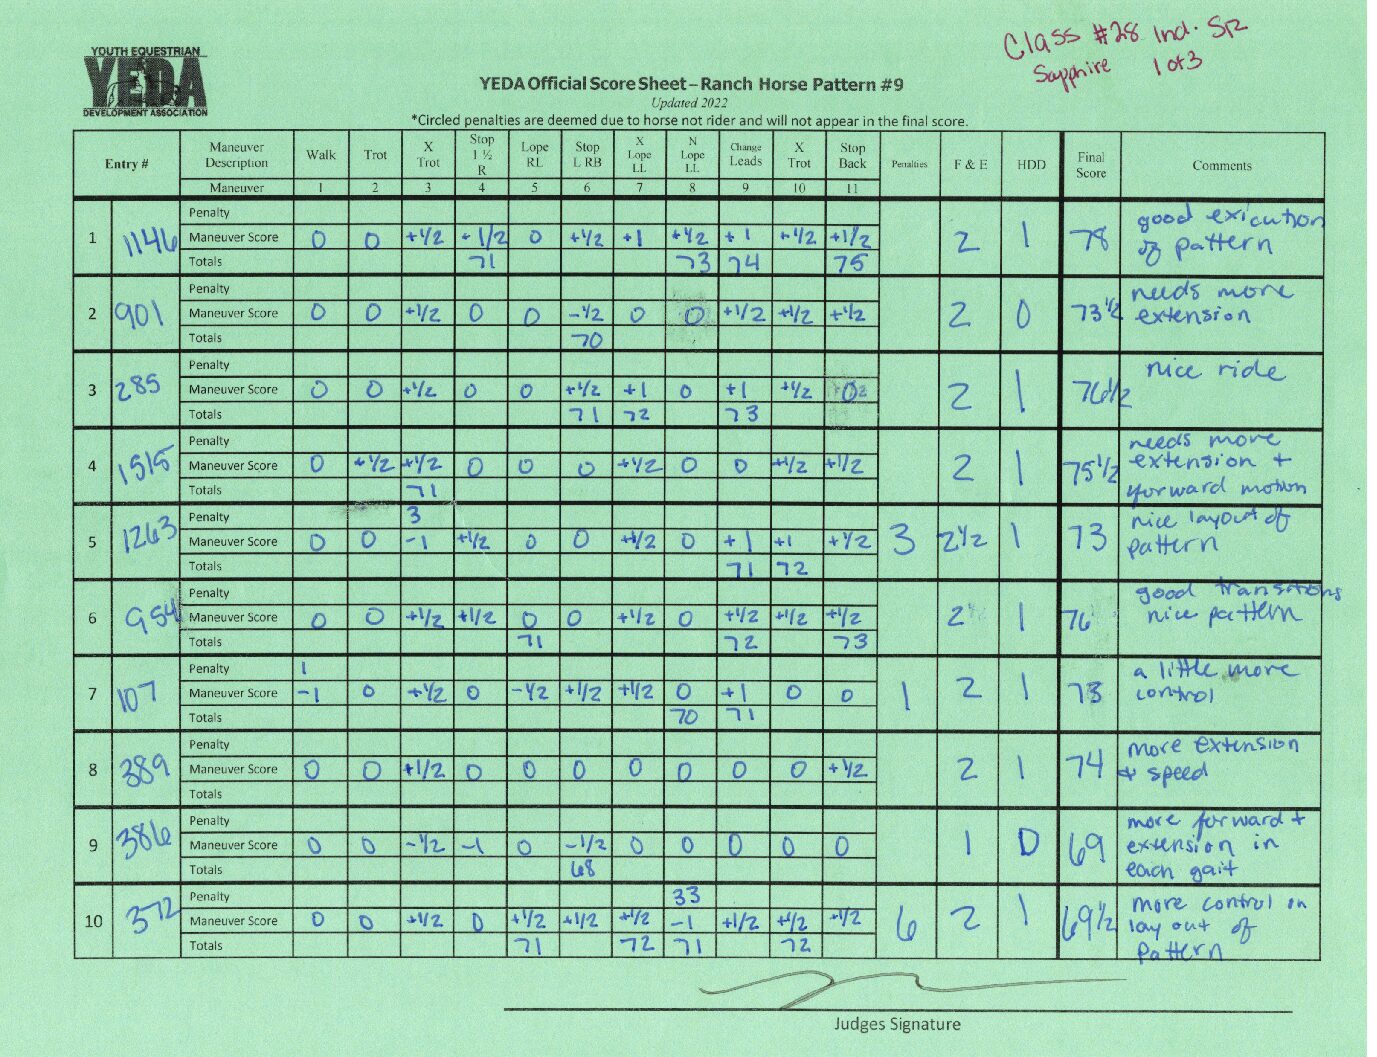 Class #28 Ind. SR
Sapphire 1 of 3
YOUTH EQUESTRIAN
YEDA
DEVELOPMENT ASSOCIATION
YEDA Official Score Sheet – Ranch Horse Pattern #9
Updated 2022
*Circled penalties are deemed due to horse not rider and will not appear in the final score.
Entry # Maneuver Description Walk Trot X Trot Stop 1 ½ R Lope RL Stop L RB X Lope LL N Lope LL Change Leads X Trot Stop Back Penalties F & E HDD Final Score Comments
Maneuver 1 2 3 4 5 6 7 8 9 10 11
1 1146 Penalty
Maneuver Score 0 0 +1/2 +1/2 0 +1/2 +1 +1/2 +1 +1/2 +1/2 2 1 78 good exicution of pattern
Totals 71 73 74 75
2 901 Penalty
Maneuver Score 0 0 +1/2 0 0 -1/2 0 0 +1/2 +1/2 +1/2 2 0 73 1/2 needs more extension
Totals 70
3 285 Penalty
Maneuver Score 0 0 +1/2 0 0 +1/2 +1 0 +1 +1/2 0 2 1 76 1/2 nice ride
Totals 71 72 73
4 1515 Penalty
Maneuver Score 0 +1/2 +1/2 0 0 0 +1/2 0 0 +1/2 +1/2 2 1 75 1/2 needs more extension + forward motion
Totals 71
5 1263 Penalty 3
Maneuver Score 0 0 -1 +1/2 0 0 +1/2 0 +1 +1 +1/2 3 2 1/2 1 73 nice layout of pattern
Totals 71 72
6 954 Penalty
Maneuver Score 0 0 +1/2 +1/2 0 0 +1/2 0 +1/2 +1/2 +1/2 2 1 76 good transitions nice pattern
Totals 71 72 73
7 107 Penalty 1
Maneuver Score -1 0 +1/2 0 -1/2 +1/2 +1/2 0 +1 0 0 1 2 1 73 a little more control
Totals 70 71
8 389 Penalty
Maneuver Score 0 0 +1/2 0 0 0 0 0 0 0 +1/2 2 1 74 more extension + speed
Totals
9 386 Penalty
Maneuver Score 0 0 -1/2 -1 0 -1/2 0 0 0 0 0 1 0 69 more forward + extension in each gait
Totals 68
10 372 Penalty 33
Maneuver Score 0 0 +1/2 0 +1/2 +1/2 +1/2 -1 +1/2 +1/2 +1/2 6 2 1 69 1/2 more control in lay out of pattern
Totals 71 72 71 72
Judges Signature